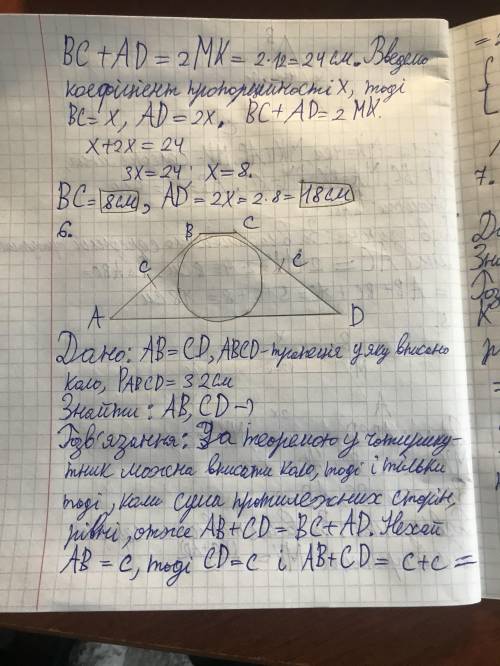 BC + AD = 2MK = 2·12 = 24 см. Введемо
коефіцієнт пропорційності x, тоді
BC = x, AD = 2x. BC + AD = 2 MK.
x + 2x = 24
3x = 24 x = 8.
BC = 8 см, AD = 2x = 2·8 = 18 см
6.
B C
C C
A D
Дано: AB = CD, ABCD - трапеція у яку вписано
коло, PABCD = 32 см
Знайти: AB, CD - ?
Розв'язання: За теоремою у чотирику-
тник можна вписати коло, тоді і тільки
тоді, коли сума протилежних сторін,
рівні, отже AB + CD = BC + AD. Нехай
AB = c, тоді CD = c і AB + CD = c + c =
7.
Да
Зна
Роз